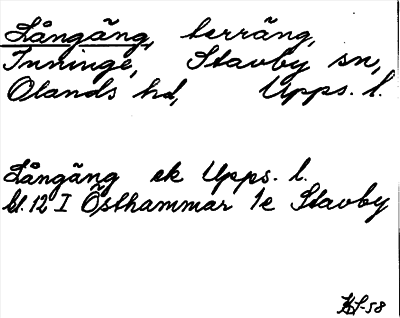 Långäng, terräng,
Inninge, Stavby sn,
Olands hd, Upps. l.
Långäng ek Upps. l.
bl. 12 I Östhammar 1e Stavby